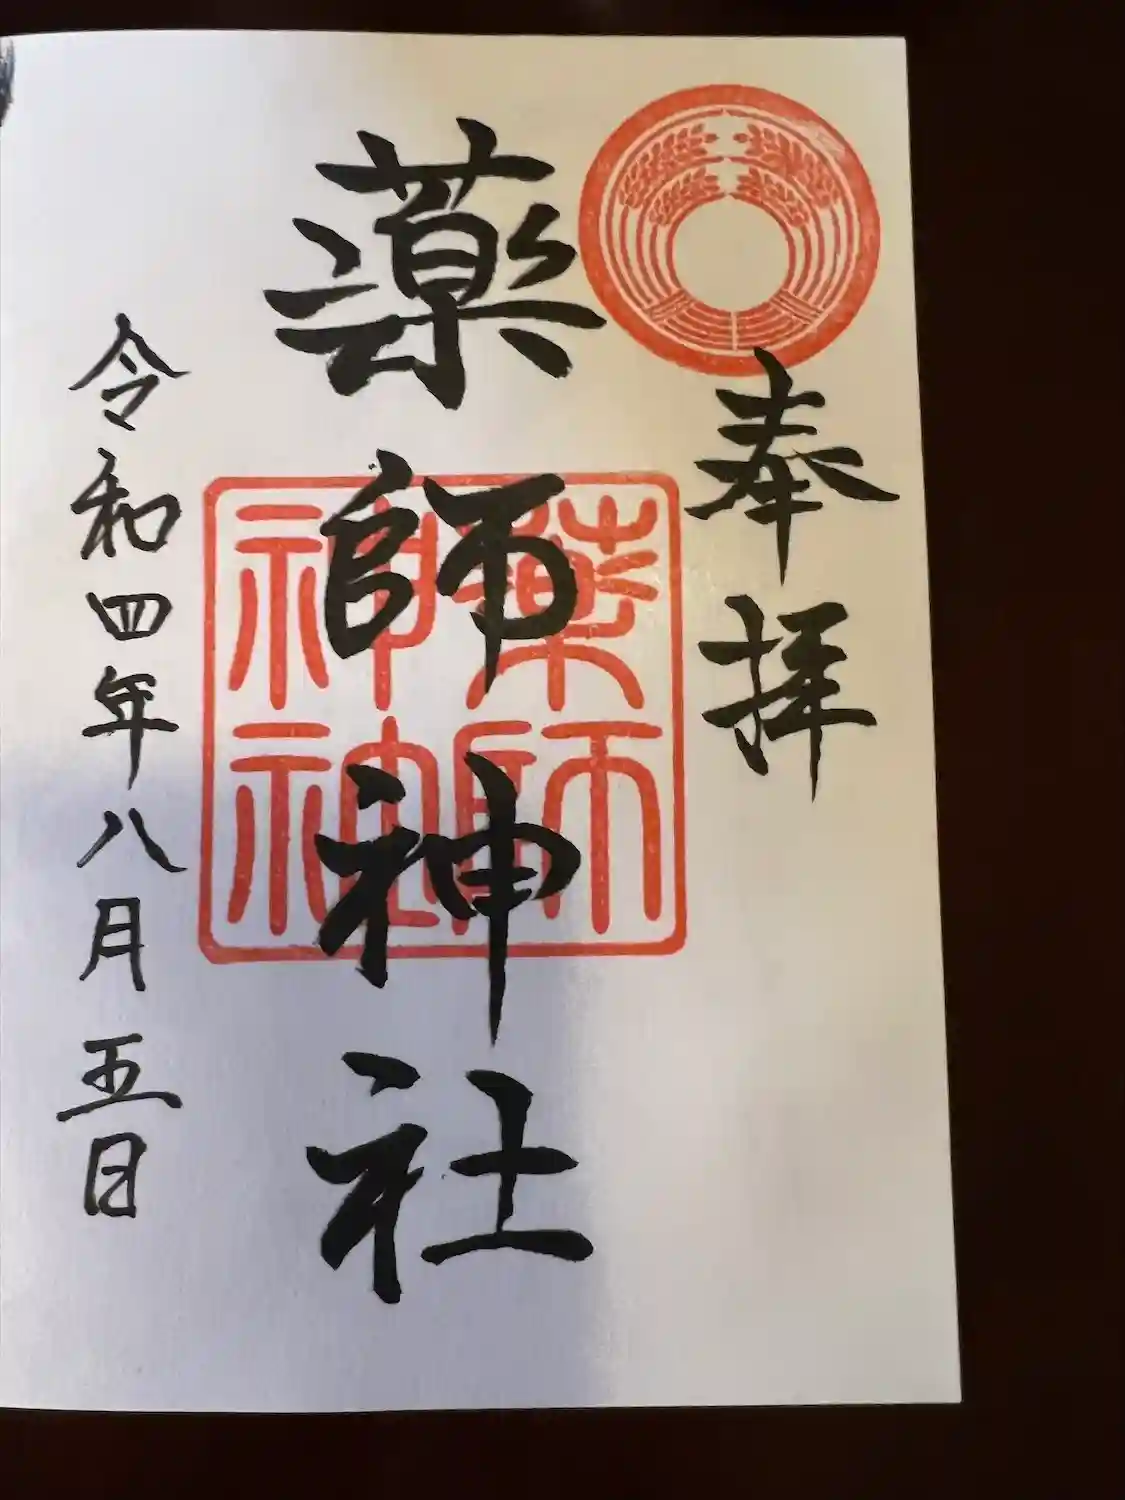 奉拝
薬師神社
薬師
神社
令和四年八月五日